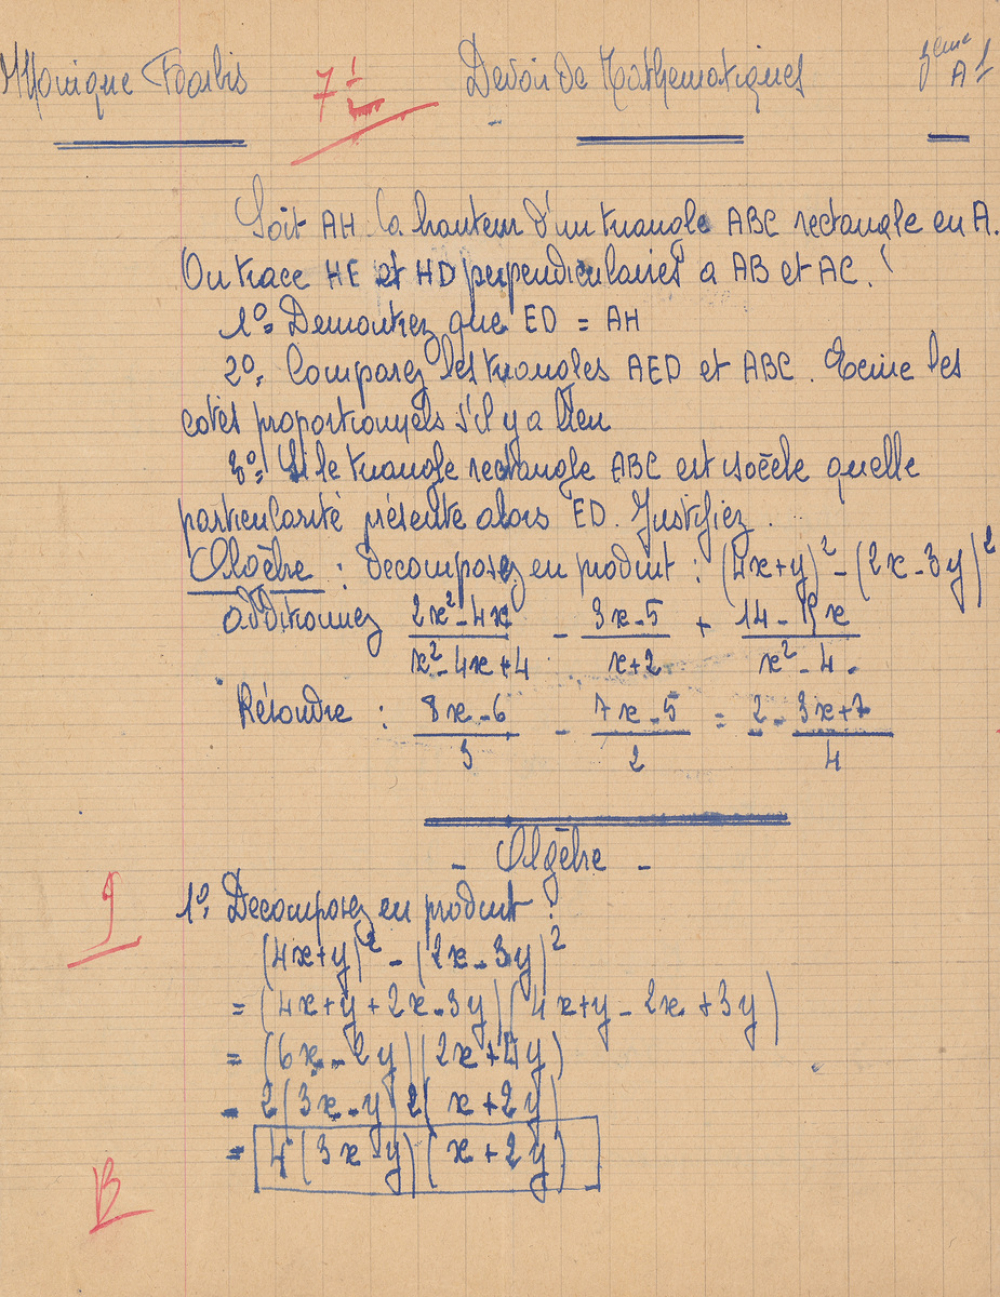 Monique Foarbis 7 1/2 Devoir de Mathematiques 3eme A 1
Soit AH la hauteur d'un triangle ABC rectangle en A.
On trace HE et HD perpendiculaires a AB et AC.
1º: Demontrez que ED = AH
2º: Comparez les triangles AED et ABC. Ecrire les
cotés proportionnels s'il y a lieu
3º: Si le triangle rectangle ABC est isocèle quelle
particularité présente alors ED. Justifiez.
Algèbre : Decomposez en produit : (4x+y)² - (2x-3y)²
Additionnez (2x²-4x)/(x²-4x+4) - (3x-5)/(x+2) + (14-19x)/(x²-4.)
Résoudre : (8x-6)/3 - (7x-5)/2 = 2 - (3x+7)/4
- Algèbre -
1º: Decomposez en produit :
(4x+y)² - (2x-3y)²
= (4x+y+2x-3y)(4x+y-2x+3y)
= (6x-2y)(2x+4y)
= 2(3x-y)2(x+2y)
= 4(3x-y)(x+2y)
B